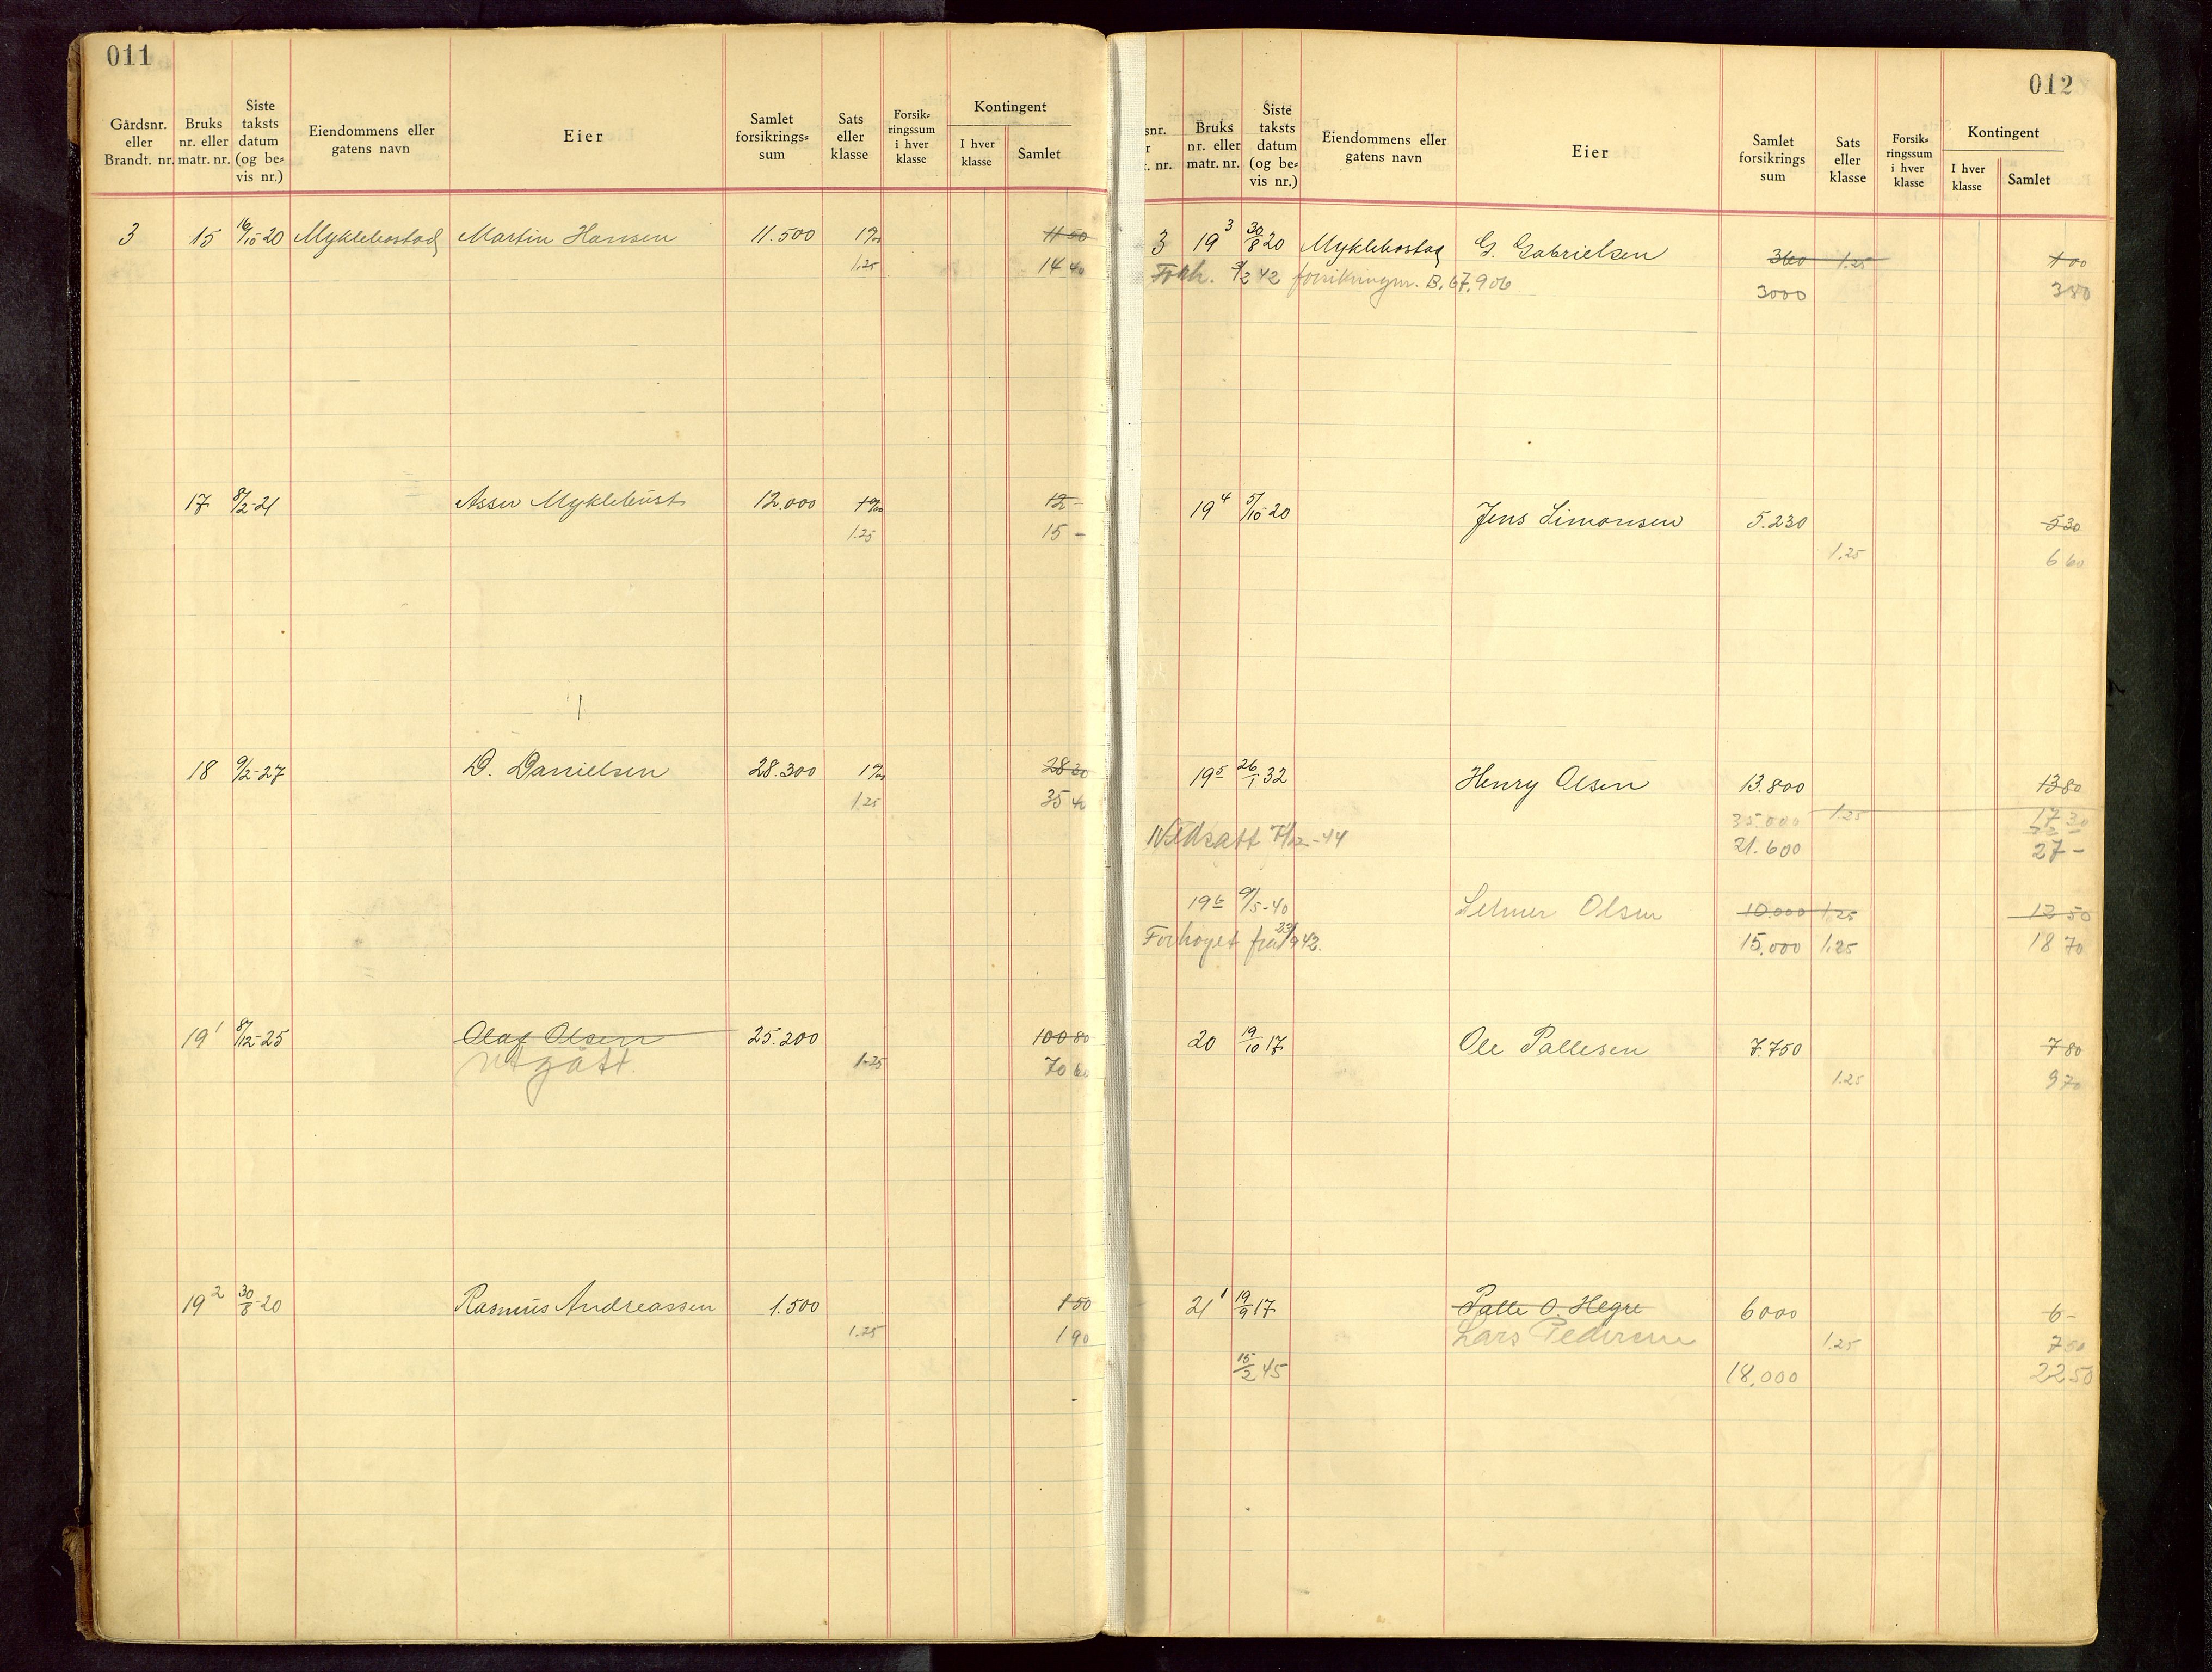 011
Gårdsnr. eller Brandt. nr. | Bruks nr. eller matr. nr. | Siste taksts datum (og be= vis nr.) | Eiendommens eller gatens navn | Eier | Samlet forsikrings= sum | Sats eller klasse | Forsik= ringssum i hver klasse | Kontingent | I hver klasse | Samlet
3 15 16/10-20 Myklebostad Martin Hansen 11.500 1‰ 11 50
1.25 14 40
17 8/2-21 Asser Myklebust 12.000 1‰ 12 -
1.25 15 -
18 9/2-27 D. Danielsen 28.300 1‰ 28 30
1.25 35 40
19¹ 8/12-25 Olaf Olsen 25.200 100 80
Utgått. 1.25 70 60
19² 30/8-20 Rasmus Andreassen 1.500 1 50
1.25 1 90
012
snr. r t. nr. | Bruks nr. eller matr. nr. | Siste taksts datum (og be= vis nr.) | Eiendommens eller gatens navn | Eier | Samlet forsikrings sum | Sats eller klasse | Forsik= ringssum i hver klasse | Kontingent | I hver klasse | Samlet
3 19³ 30/8 20 Myklebostad G. Gabrielsen 360 1.25 1 00
Forh. 3/2 42 forsikringnr. B. 67.906 3000 3 80
19⁴ 5/10 20 Jens Simonsen 5.230 5 30
1.25 6 60
19⁵ 26/1 32 Henry Olsen 13.800 13 80
35.000 1.25 17 30
Nedsatt -44 21.600 27 -
19⁶ 9/5-40 Selmer Olsen 10.000 1.25 12 50
Forhøyet fra 23/9 42. 15.000 1.25 18 70
20 19/10 17 Ole Pallesen 7.750 7 80
1.25 9 70
21¹ 19/9 17 Palle O. Hegre 6000 6 -
Lars Pedersen 1.25 7 50
15/2 45 18.000 22 50